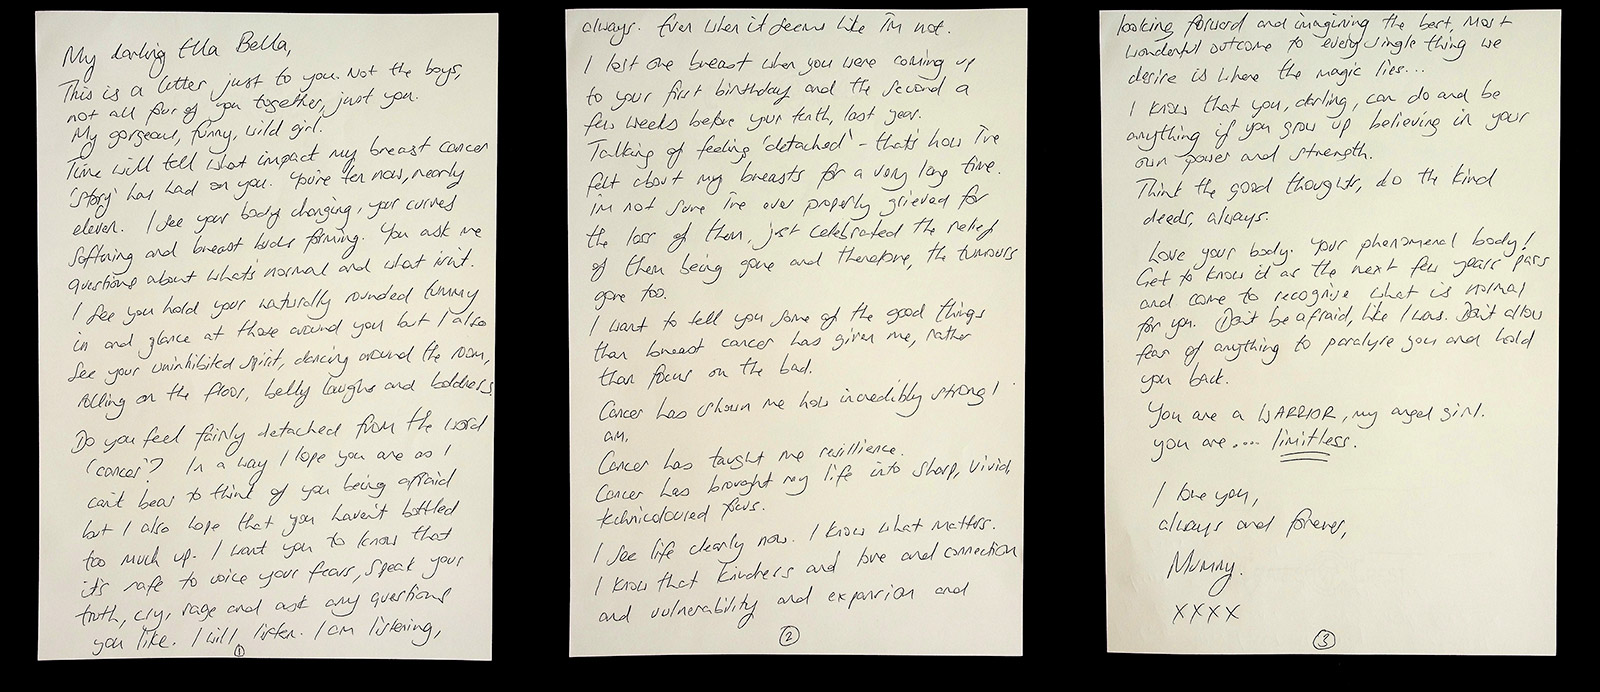 My darling Ella Bella,
This is a letter just to you. Not the boys,
not all four of you together, just you.
My gorgeous, funny, wild girl.
Time will tell what impact my breast cancer
'story' has had on you. You're ten now, nearly
eleven. I see your body changing, your curves
softening and breast buds forming. You ask me
questions about what's normal and what isn't.
I see you hold your naturally rounded tummy
in and glance at those around you but I also
see your uninhibited spirit, dancing around the room,
rolling on the floor, belly laughs and boldness.
Do you feel fairly detached from the word
'cancer'? In a way I hope you are as I
can't bear to think of you being afraid
but I also hope that you haven't bottled
too much up. I want you to know that
it's safe to voice your fears, speak your
truth, cry, rage and ask any questions
you like. I will listen. I am listening,
1
always. Even when it seems like I'm not.
I lost one breast when you were coming up
to your first birthday and the second a
few weeks before your tenth, last year.
Talking of feeling 'detached' - that's how I've
felt about my breasts for a very long time.
I'm not sure I've ever properly grieved for
the loss of them, just celebrated the relief
of them being gone and therefore, the tumours
gone too.
I want to tell you some of the good things
than breast cancer has given me, rather
than focus on the bad.
Cancer has shown me how incredibly strong I
am.
Cancer has taught me resillience.
Cancer has brought my life into sharp, vivid,
technicoloured focus.
I see life clearly now. I know what matters.
I know that kindness and love and connection
and vulnerability and expansion and
2
looking forward and imagining the best, most
wonderful outcome to every single thing we
desire is where the magic lies...
I know that you, darling, can do and be
anything if you grow up believing in your
own power and strength.
Think the good thoughts, do the kind
deeds, always.
Love your body. Your phenomenal body!
Get to know it as the next few years pass
and come to recognise what is normal
for you. Don't be afraid, like I was. Don't allow
fear of anything to paralyse you and hold
you back.
You are a WARRIOR, my angel girl.
you are.... limitless.
I love you,
always and forever,
Mummy.
xxxx
3